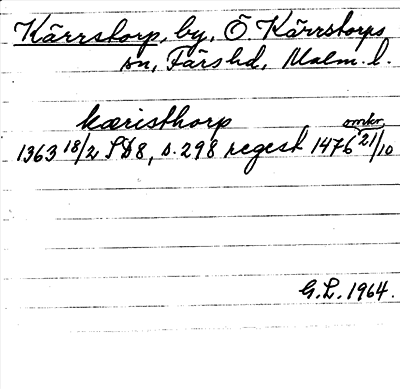 Kärrstorp, by, Ö Kärrstorps
sn, Färs hd, Malm. l.
kæristhorp
omkr
1363 18/2 SD8, s. 298 regest 1476 21/10
G.L. 1964.